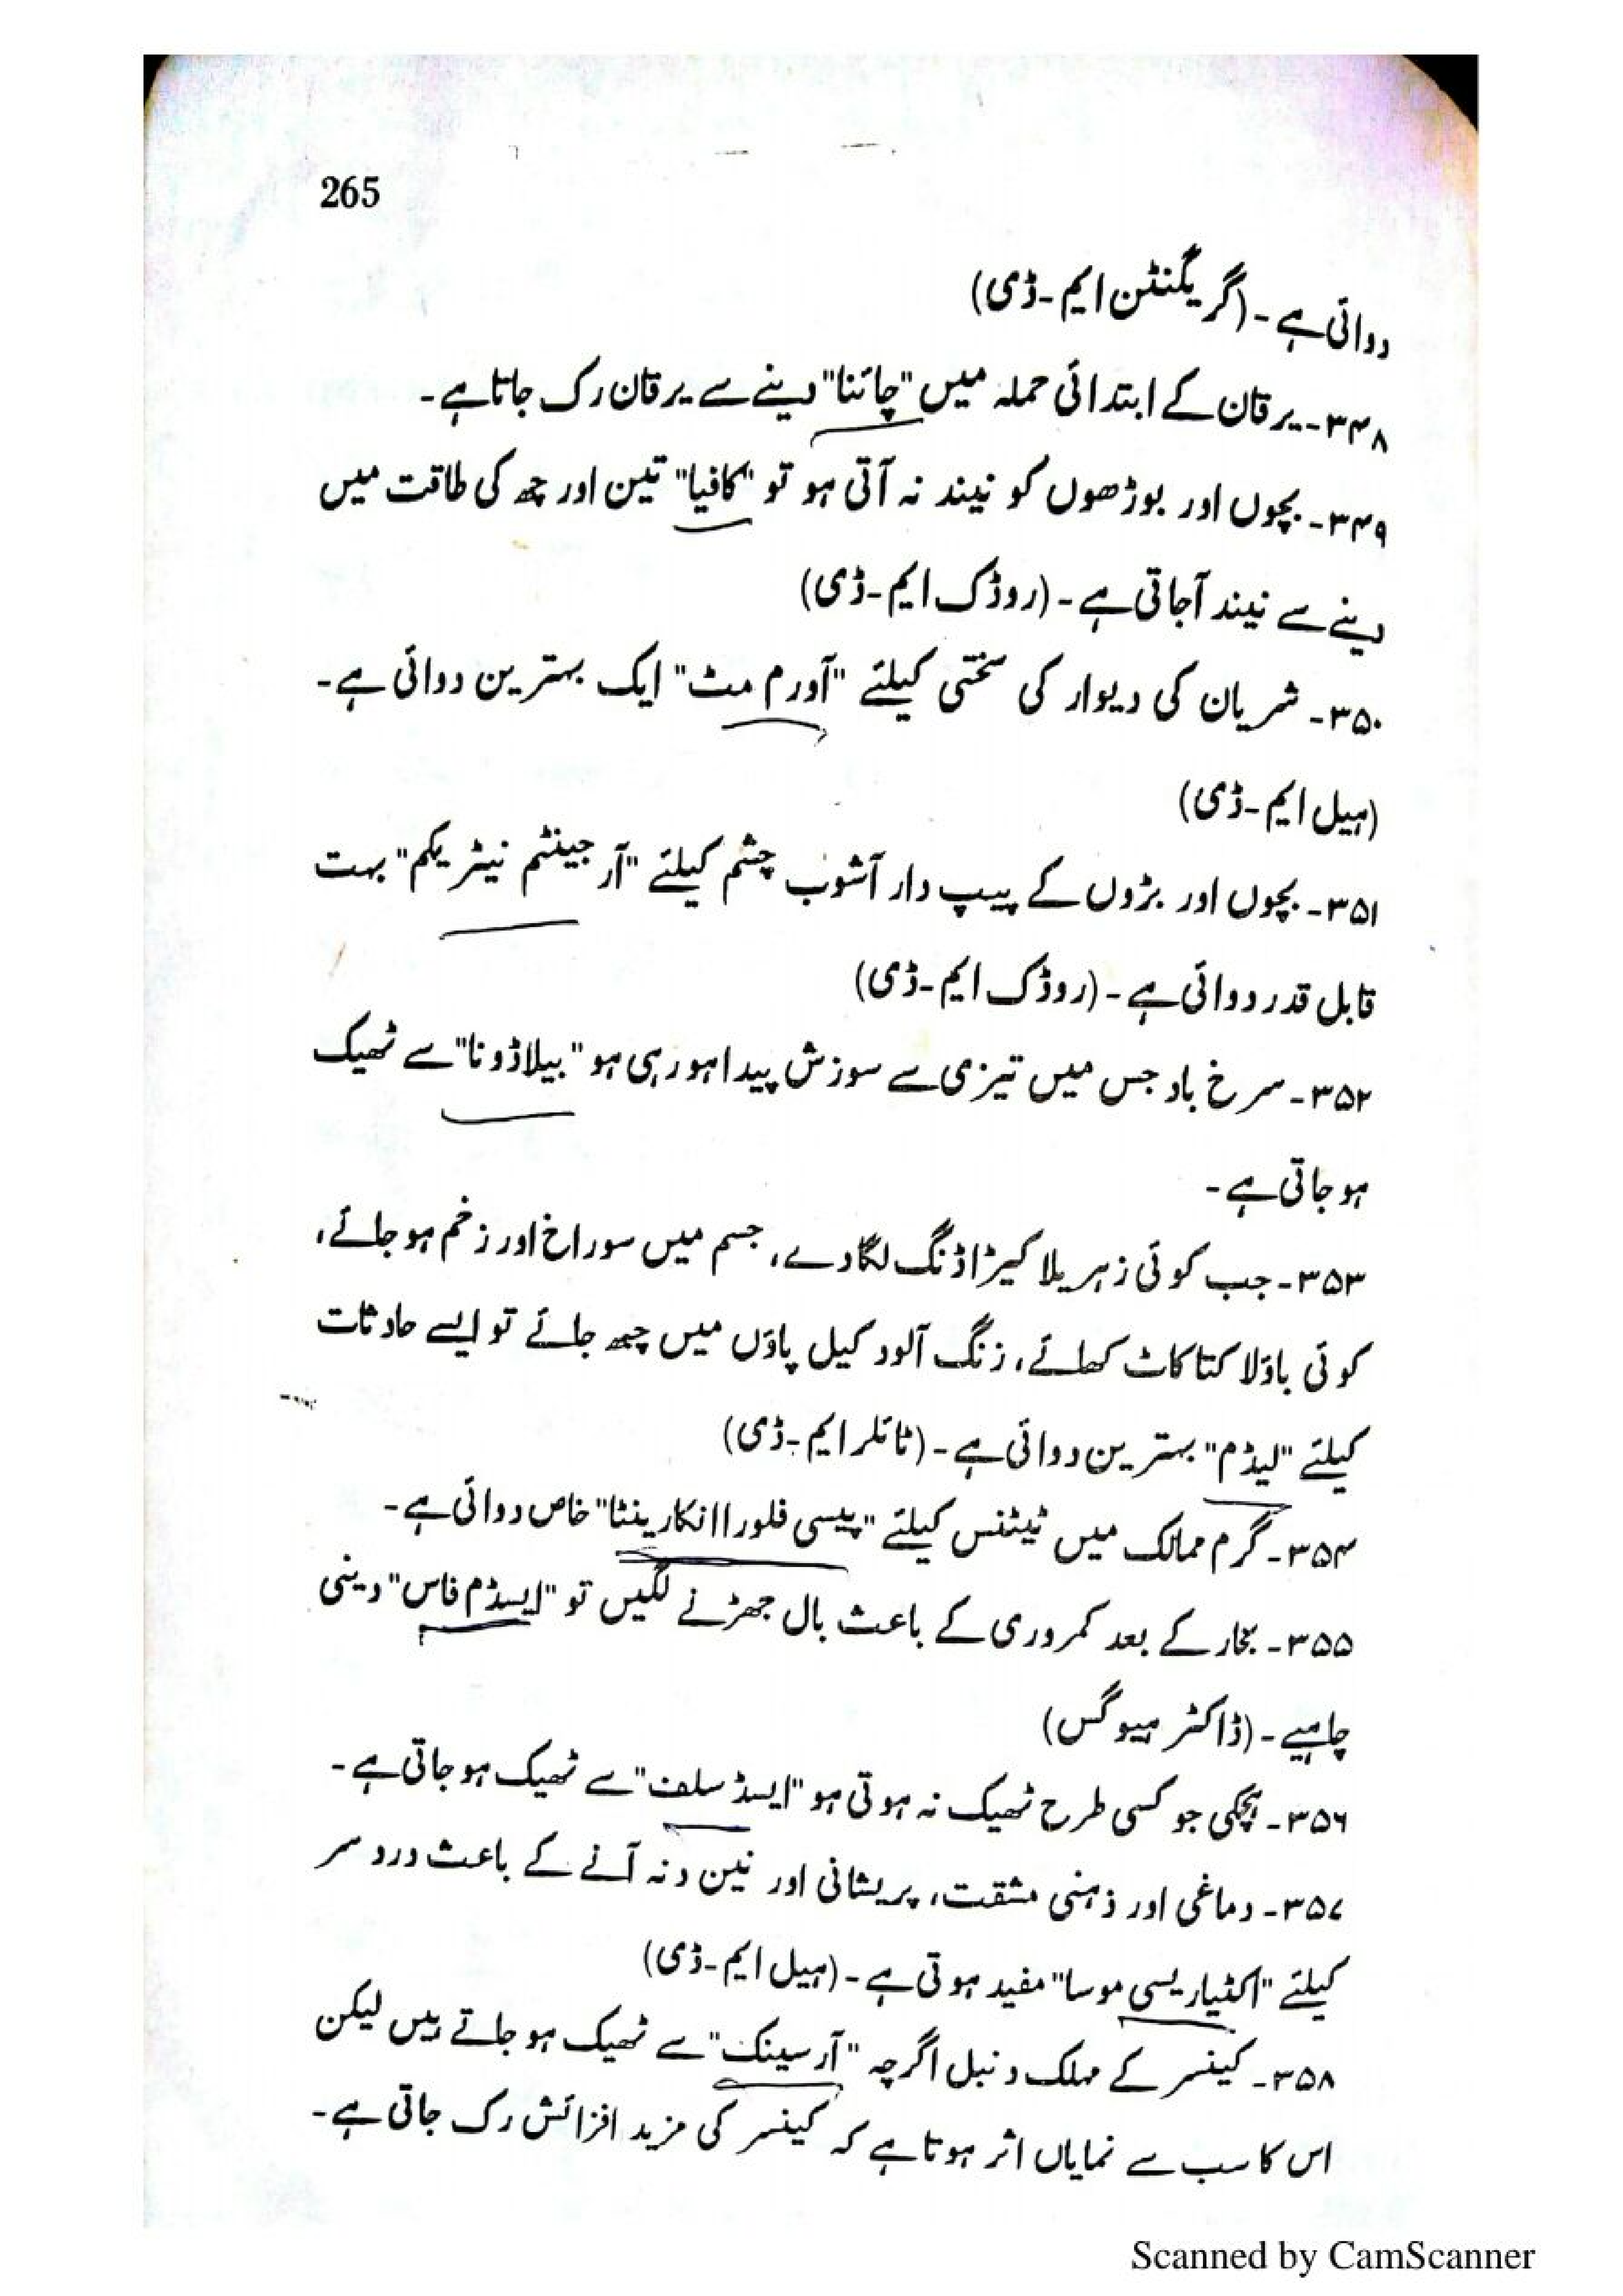 265
دوائی ہے۔ (گریگنٹن ایم۔ڈی)
۳۴۸۔ یرقان کے ابتدائی حملہ میں "چائنا" دینے سے یرقان رک جاتا ہے۔
۳۴۹۔ بچوں اور بوڑھوں کو نیند نہ آتی ہو تو "کافیا" تین اور چھ کی طاقت میں
دینے سے نیند آجاتی ہے۔ (روڈک ایم۔ڈی)
۳۵۰۔ شریان کی دیوار کی سختی کیلئے "آورم مٹ" ایک بہترین دوائی ہے۔
(ہیل ایم۔ڈی)
۳۵۱۔ بچوں اور بڑوں کے پیپ دار آشوب چشم کیلئے "آرجینٹم نیٹریکم" بہت
قابل قدر دوائی ہے۔ (روڈک ایم۔ڈی)
۳۵۲۔ سرخ باد جس میں تیزی سے سوزش پیدا ہو رہی ہو "بیلاڈونا" سے ٹھیک
ہو جاتی ہے۔
۳۵۳۔ جب کوئی زہریلا کیڑا ڈنگ لگا دے، جسم میں سوراخ اور زخم ہو جائے،
کوئی باؤلا کتا کاٹ کھائے، زنگ آلود کیل پاؤں میں چبھ جائے تو ایسے حادثات
کیلئے "لیڈم" بہترین دوائی ہے۔ (ٹائلر ایم۔ڈی)
۳۵۴۔ گرم ممالک میں ٹیٹنس کیلئے "پیسی فلورا انکارینٹا" خاص دوائی ہے۔
۳۵۵۔ بخار کے بعد کمزوری کے باعث بال جھڑنے لگیں تو "ایسڈم فاس" دینی
چاہیے۔ (ڈاکٹر ہیوگس)
۳۵۶۔ ہچکی جو کسی طرح ٹھیک نہ ہوتی ہو "ایسڈ سلف" سے ٹھیک ہو جاتی ہے۔
۳۵۷۔ دماغی اور ذہنی مشقت، پریشانی اور نین دنہ آنے کے باعث درد سر
کیلئے "اکٹیاریسی موسا" مفید ہوتی ہے۔ (ہیل ایم۔ڈی)
۳۵۸۔ کینسر کے مہلک دنبل اگرچہ "آرسینک" سے ٹھیک ہو جاتے ہیں لیکن
اس کا سب سے نمایاں اثر ہوتا ہے کہ کینسر کی مزید افزائش رک جاتی ہے۔
Scanned by CamScanner